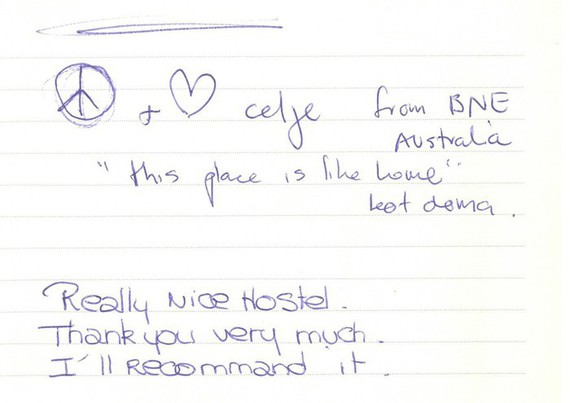 ☮ + ♡ celje from BNE
Australia
"this place is like home"
kot doma.
Really Nice Hostel.
Thank you very much.
I'll Recommand it.